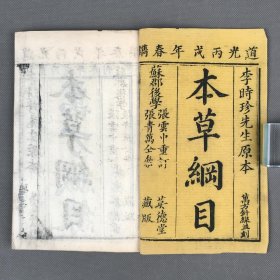 道光丙戌年春鐫
李時珍先生原本
萬方鍼線並刻
本草綱目
蘇郡後學張雲中重訂
張青萬仝參
英德堂藏版